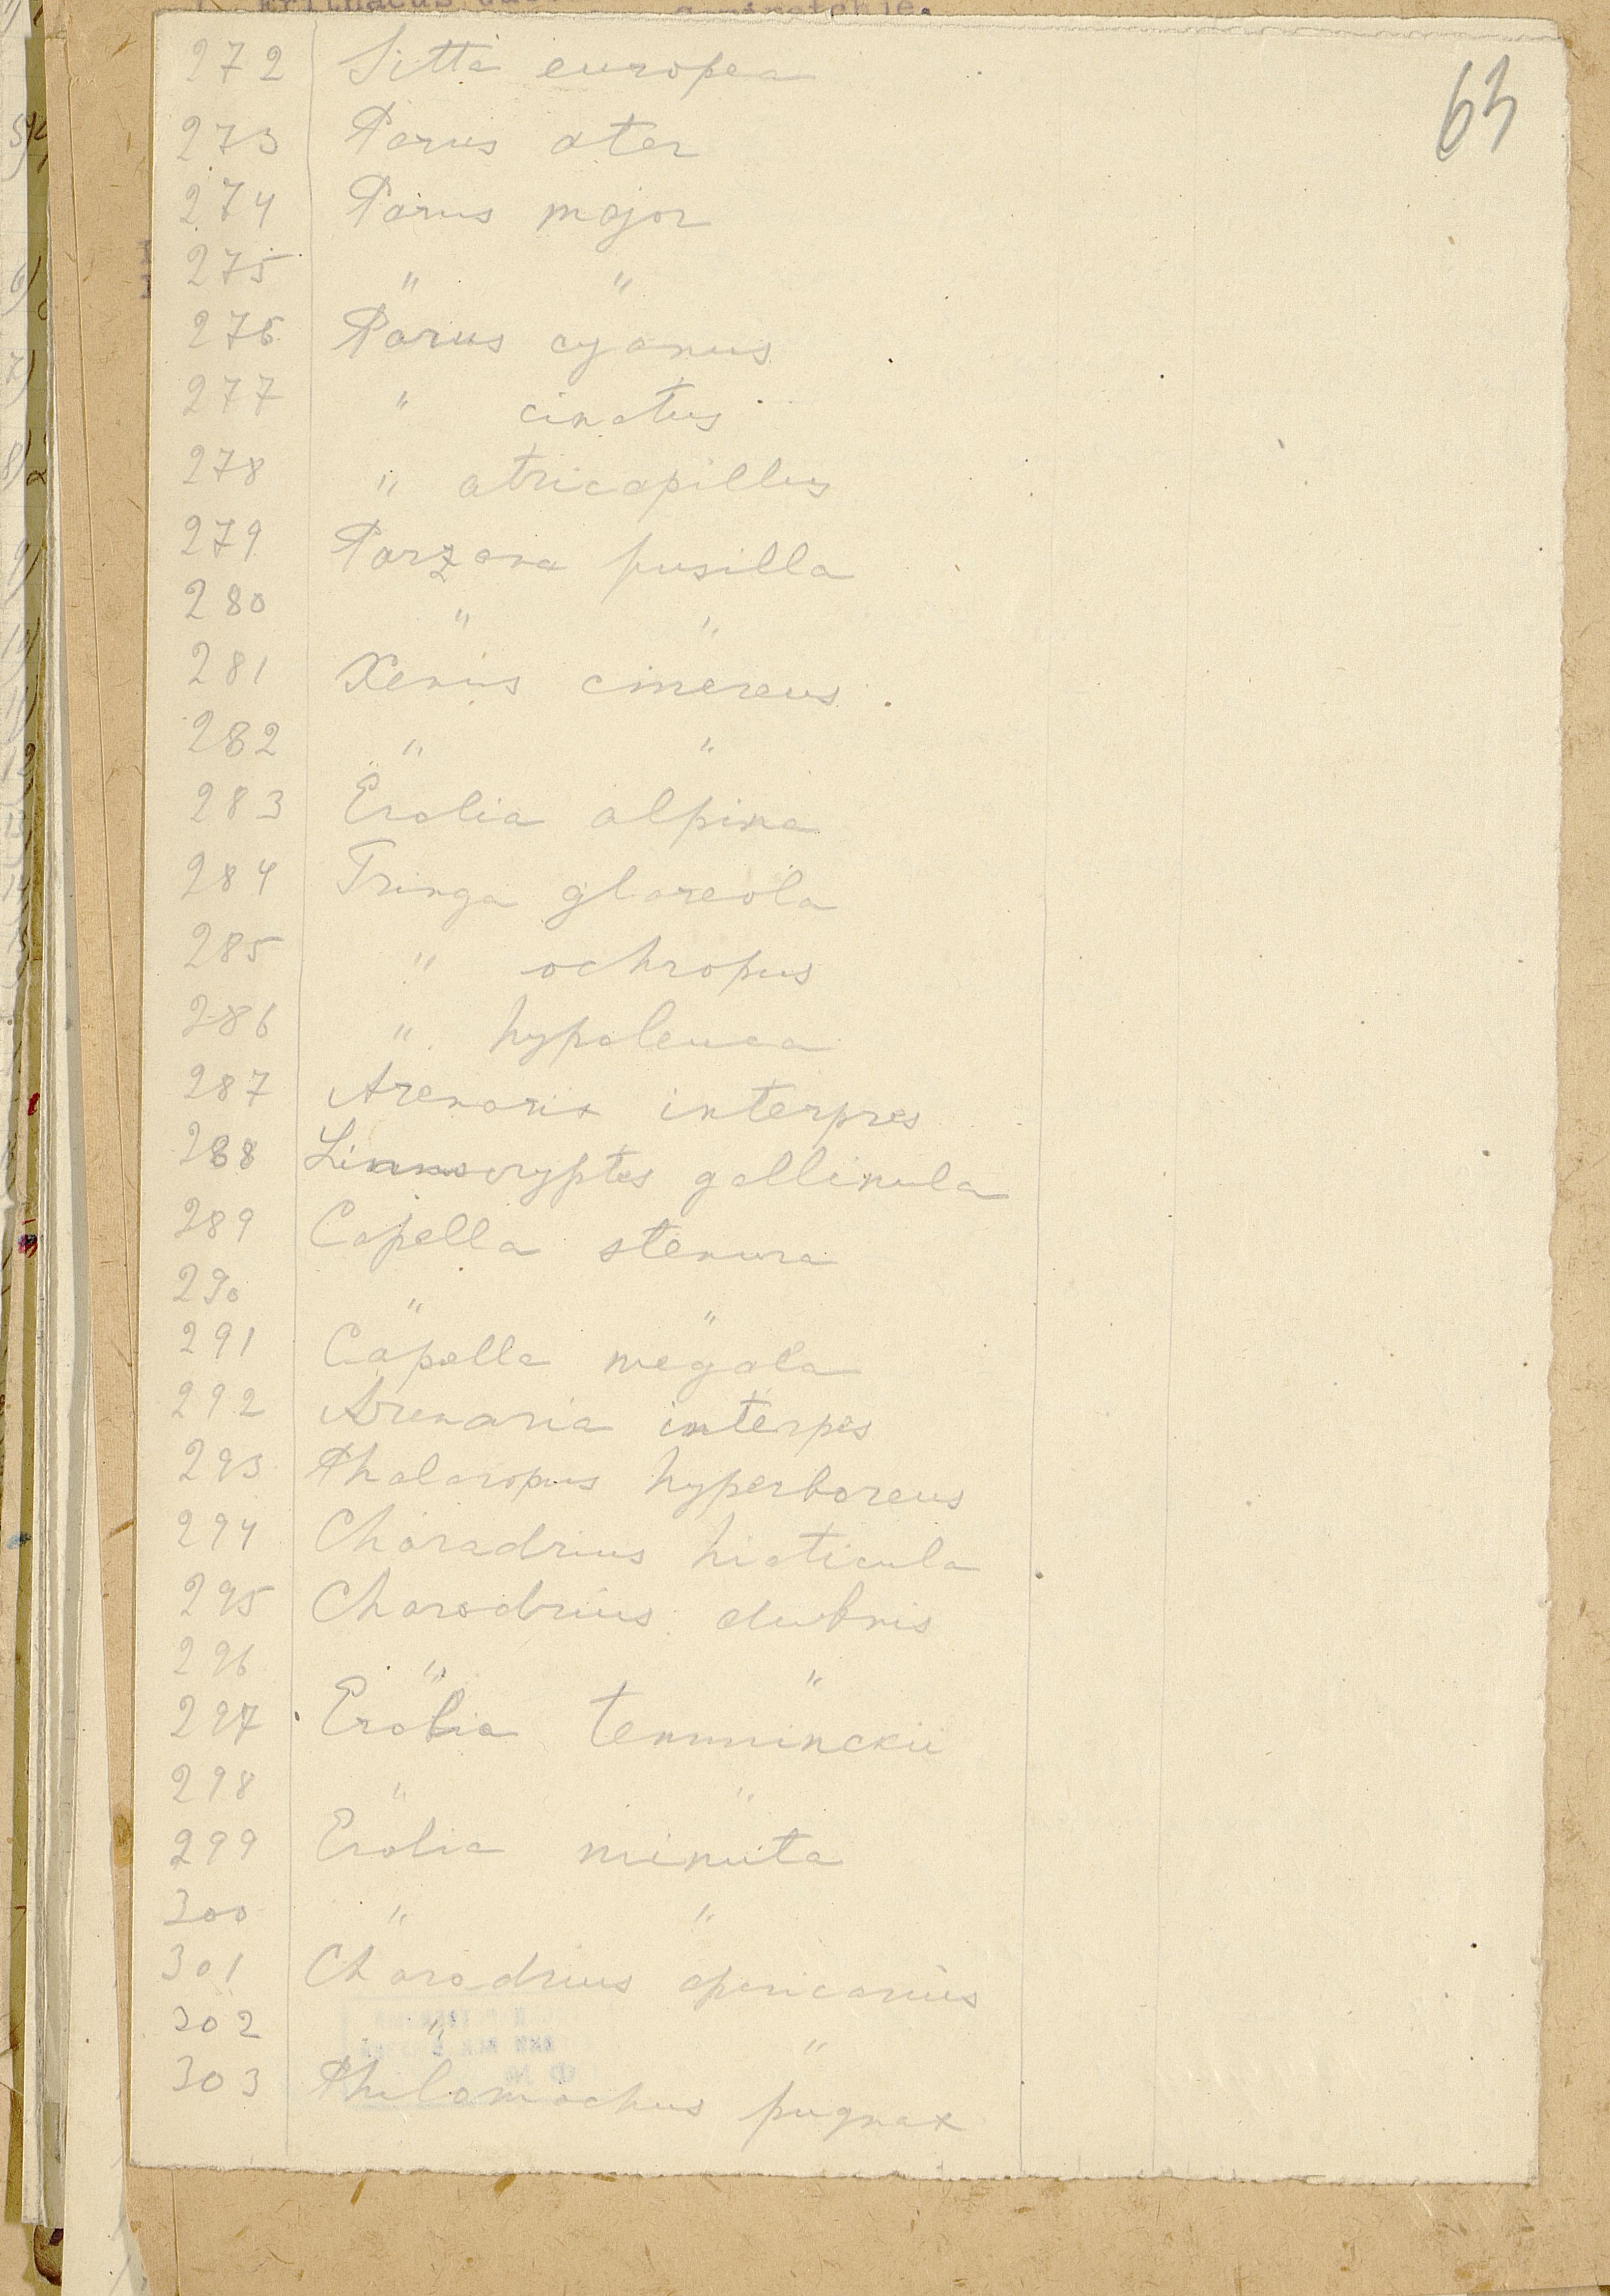 63
272 Sitta europea
273 Parus ater
274 Parus major
275 " "
276 Parus cyanus
277 " cinctus
278 " atricapillus
279 Porzana pusilla
280 " "
281 Xenus cinereus
282 " "
283 Erolia alpina
284 Tringa glareola
285 " ochropus
286 " hypoleuca
287 Arenaria interpres
288 Limnocryptes gallinula
289 Capella stenura
290 " "
291 Capella megala
292 Arenaria interpes
293 Phalaropus hyperboreus
294 Charadrius hiaticula
295 Charadrius dubius
296 " "
297 Erolia temminckii
298 " "
299 Erolia minuta
300 " "
301 Charadrius apricarius
302 " "
303 Philomachus pugnax